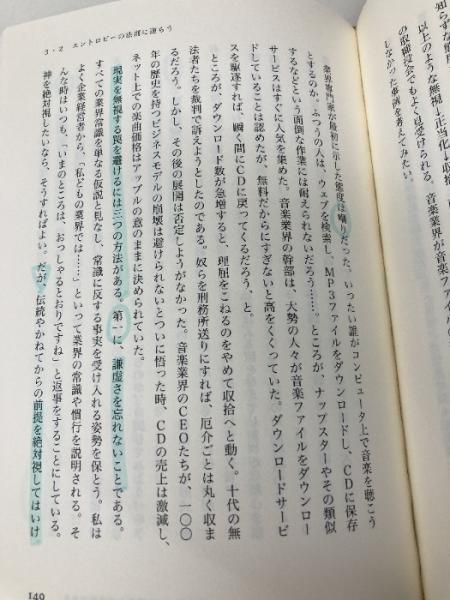 以上のような無視↓正当化↓収拾
の取締役会でもよく見受けられる。
しなかった事例を考えてみたい。
3・2 エントロピーの法則に逆らう
業界専門家が最初に示した態度は嘲りだった。いったい誰がコンピュータ上で音楽を聴こう
とするのか。ふつうの人は、ウェブを検索し、MP3ファイルをダウンロードし、CDに保存
するなどという面倒な作業には耐えられないだろう……。ところが、ナップスターやその類似
サービスはすぐに人気を集めた。音楽業界の幹部は、大勢の人々が音楽ファイルをダウンロー
ドしていることは認めたが、無料だからにすぎないと高をくくっていた。ダウンロードサービ
スを駆逐すれば、瞬く間にCDに戻ってくるだろう、と。
ところが、ダウンロード数が急増すると、理屈をこねるのをやめて収拾へと動く。十代の無
法者たちを裁判で訴えようとしたのである。奴らを刑務所送りにすれば、厄介ごとは丸く収ま
るだろう。しかし、その後の展開は否定しようがなかった。音楽業界のCEOたちが、一〇〇
年の歴史を持つビジネスモデルの崩壊は避けられないとついに悟った時、CDの売上は激減し、
ネット上での楽曲価格はアップルの意のままに決められていた。
現実を無視する罠を避けるには三つの方法がある。第一に、謙虚さを忘れないことである。
すべての業界常識を単なる仮説と見なし、常識に反する事実を受け入れる姿勢を保とう。私は
よく企業経営者から、「私どもの業界では……」といって業界の常識や慣行を説明される。そ
んな時はいつも、「いまのところは、おっしゃるとおりですね」と返事をすることにしている。
神を絶対視したいなら、そうすればよい。だが、伝統やかねてからの前提を絶対視してはいけ
149